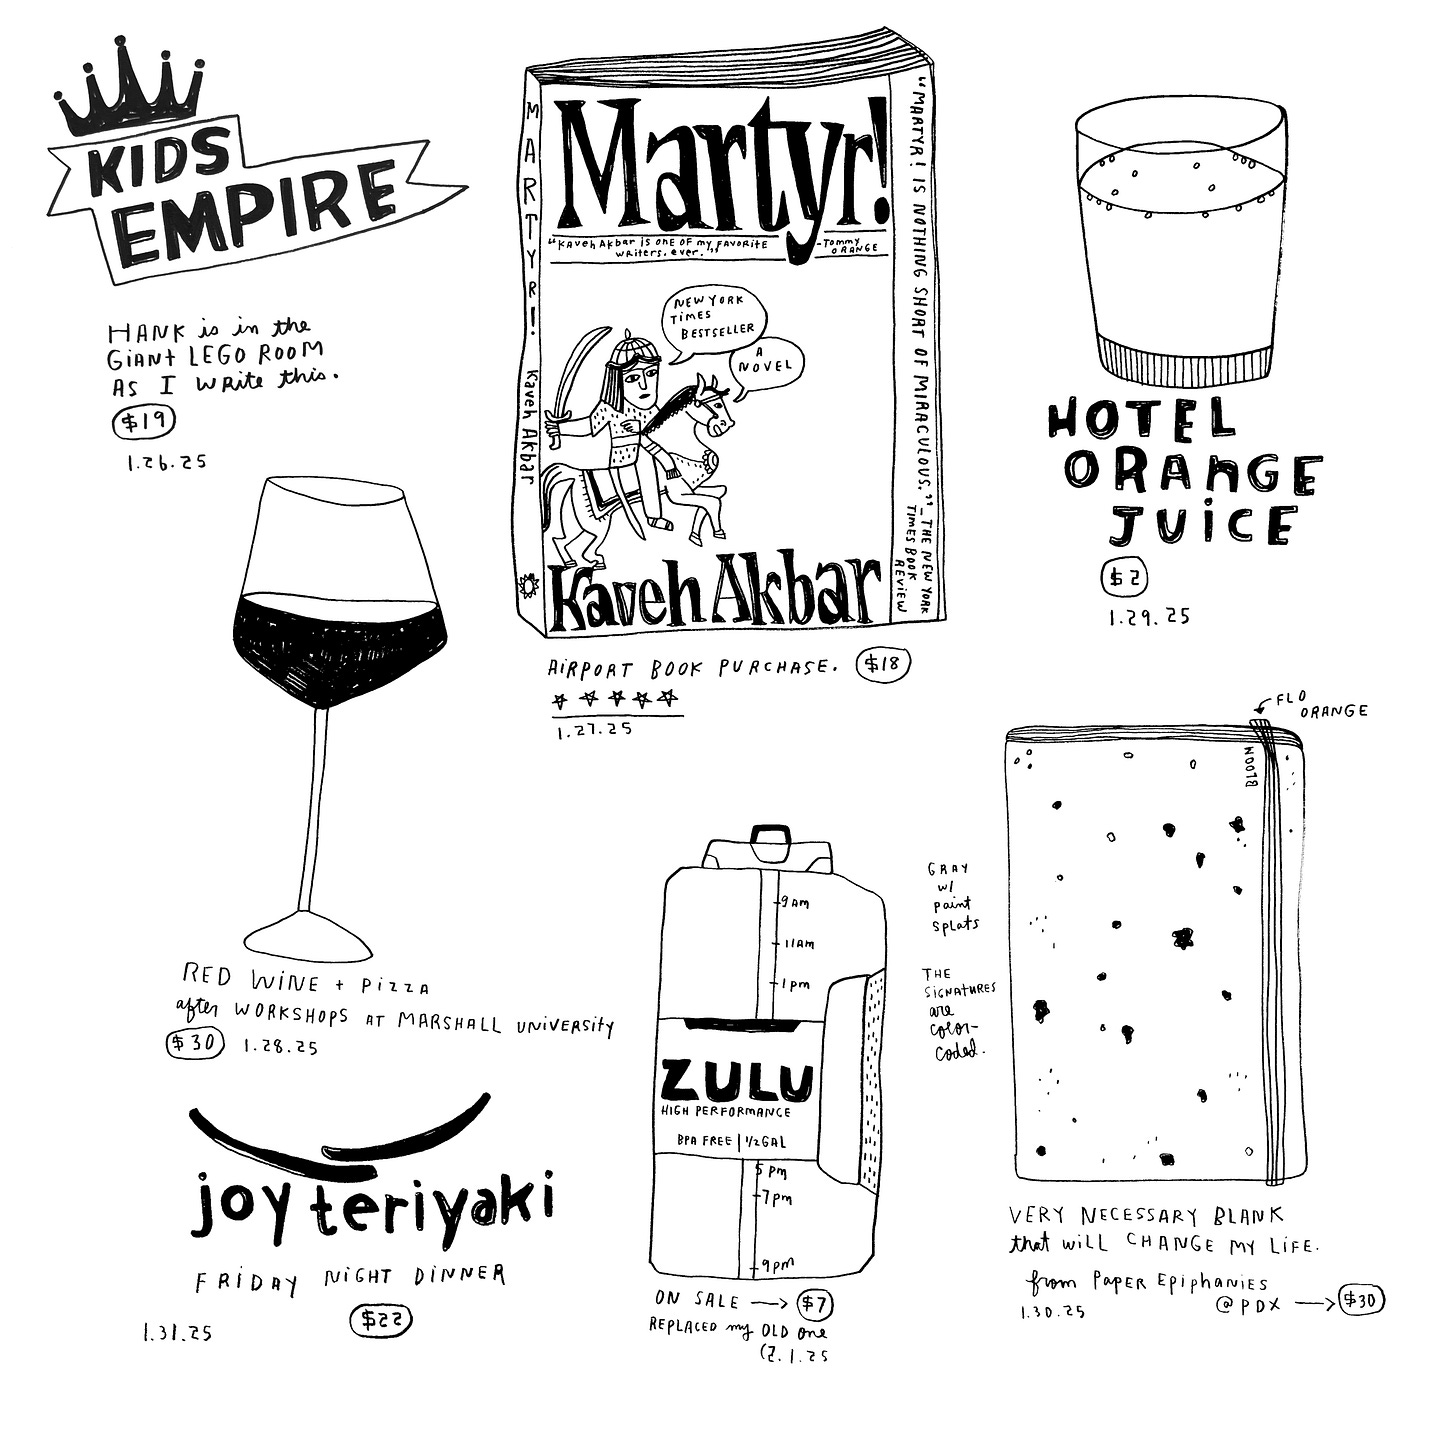 KIDS
EMPIRE
HANK is in the
GIANT LEGO ROOM
AS I WRITE this.
$19
1.26.25
MARTYR! Kaveh Akbar
Martyr!
"Kaveh Akbar is one of my favorite
writers, ever."
-Tommy
ORANGE
NEW YORK
TIMES
BESTSELLER
A
NOVEL
Kaveh Akbar
"MARTYR! IS NOTHING SHORT OF MIRACULOUS." - THE NEW YORK
TIMES BOOK
REVIEW
AIRPORT BOOK PURCHASE. $18
1.27.25
HOTEL
ORANGE
JUICE
$2
1.29.25
RED WINE + PIZZA
after WORKSHOPS AT MARSHALL UNIVERSITY
$30 1.28.25
FLO
ORANGE
BLOON
GRAY
w/
paint
splats
THE
SIGNATURES
are
color-
coded.
VERY NECESSARY BLANK
that WILL CHANGE MY LIFE.
from PAPER EPIPHANIES
1.30.25
@ PDX → $30
9 AM
11 AM
1 pm
ZULU
HIGH PERFORMANCE
BPA FREE | 1/2 GAL
5 pm
7 pm
9 pm
ON SALE → $7
REPLACED my OLD one
(2.1.25
joy teriyaki
FRIDAY NIGHT DINNER
$22
1.31.25